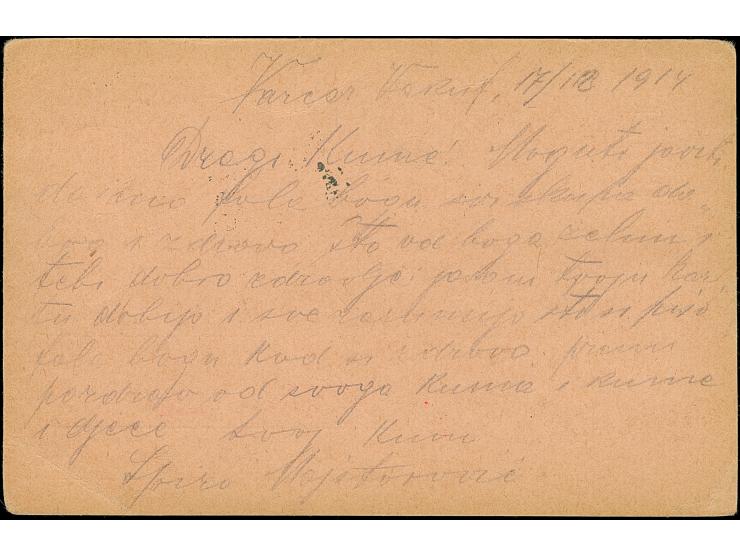 Varcar Vakuf, 17/12 1914
Dragi Kume! Mogu ti javiti
da smo fala bogu svi skupa da
bog i zdravo što od boga želim i
tebi dobro zdravlje ja sam tvoju kar
tu dobijo i sve razumijo što si piso
fala bogu kad si zdravo primi
pozdravo od svoga kuma i kume
i djece tvoj Kum
Spiro